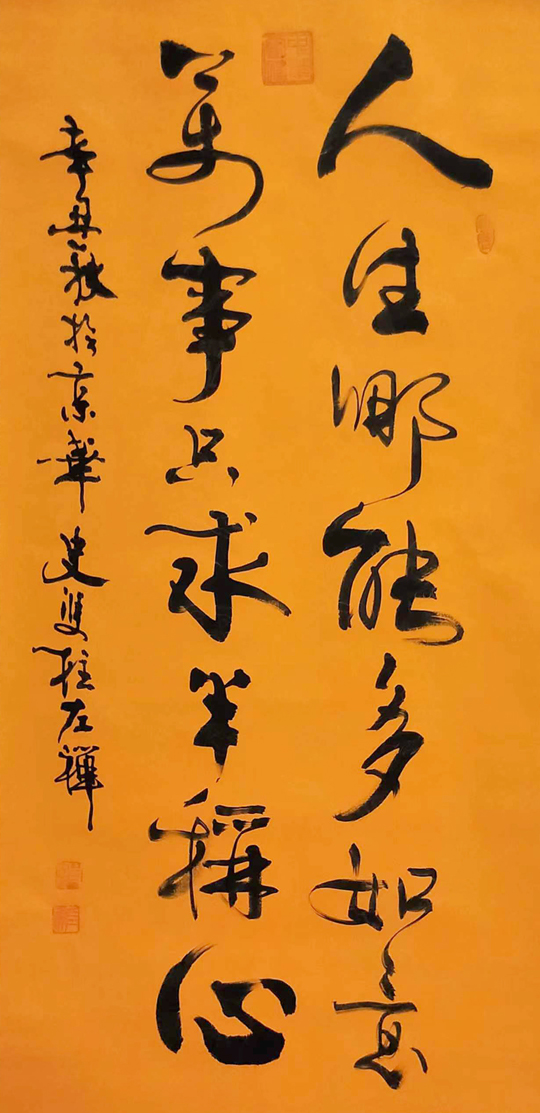 人生哪能多如意
萬事只求半稱心
辛丑秋於京華史雙柱左禪